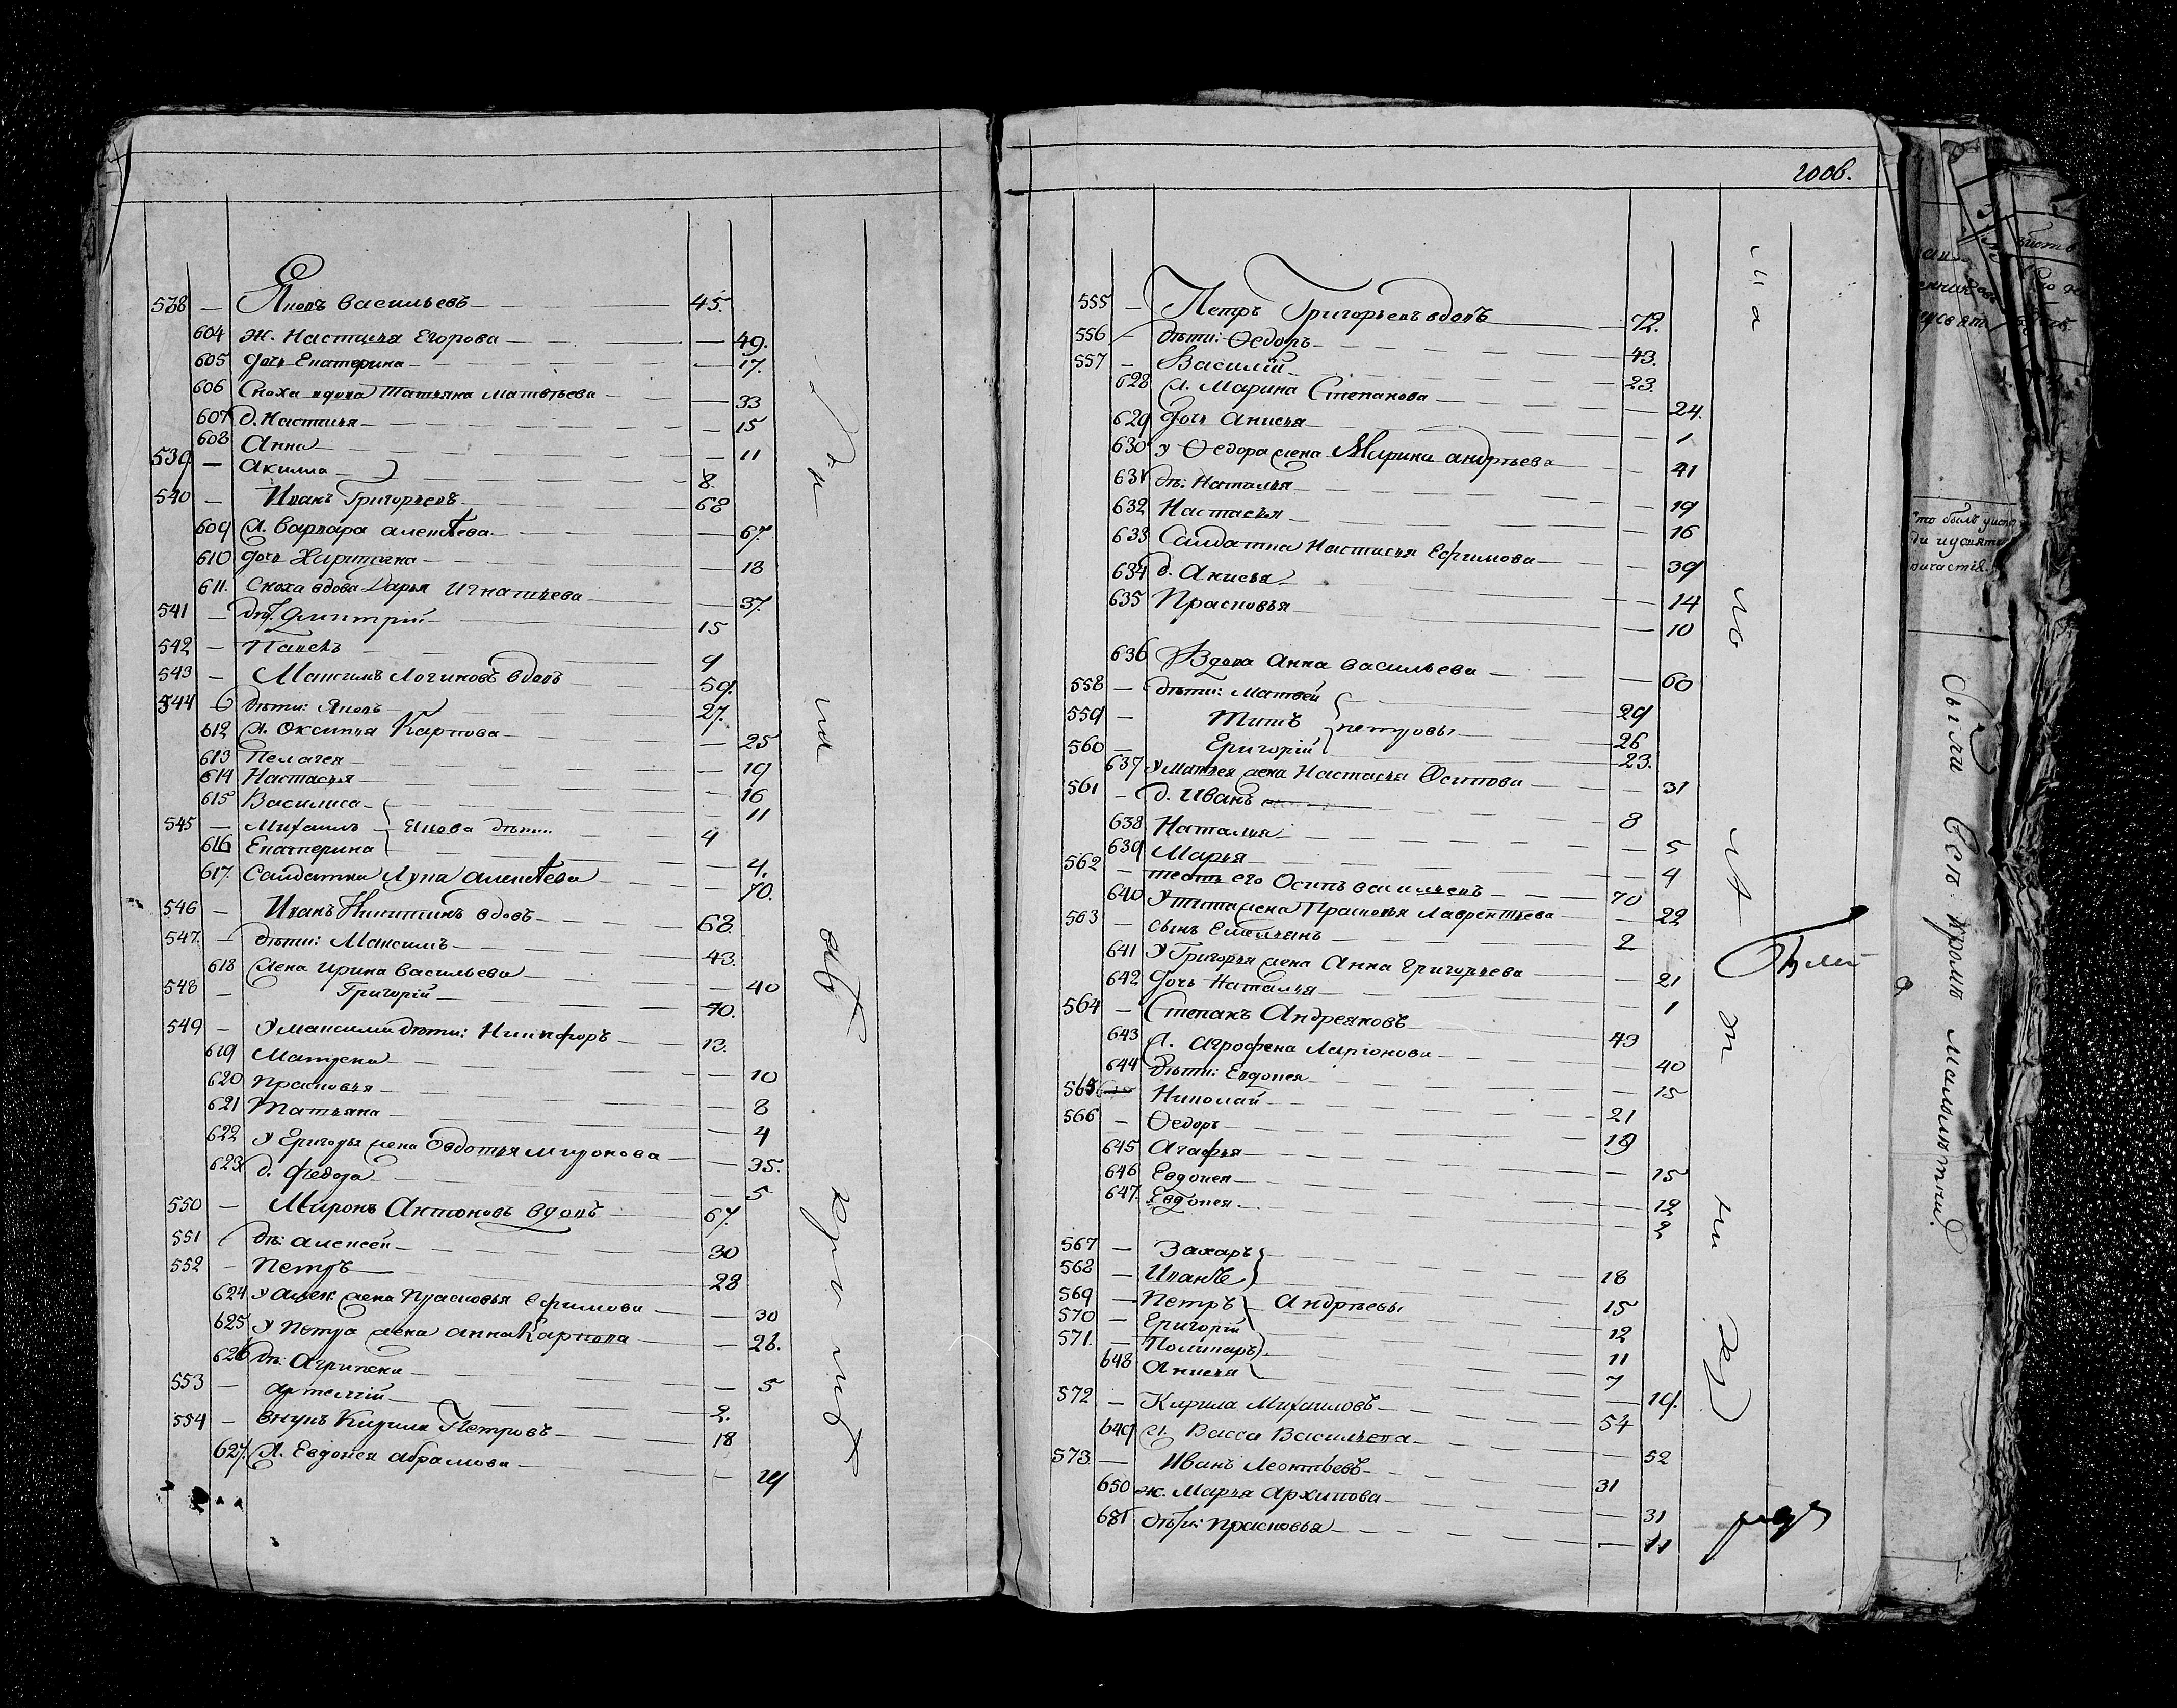 538 — Яковъ Васильевъ — 45.
604 ж. Настасья Егорова — 49.
605 дочь Екатерина — 17.
606 Сноха вдова Татьяна Матвѣева — 33
607 д. Настасья — 15
608 Анна — 11
539 — Акилла — 8.
540 — Иванъ Григорьевъ — 68
609 ж. Варвара Алексѣева — 67.
610 дочь Харитина — 18
611. Сноха вдова Дарья Игнатьева — 37.
541 — дѣ. Дмитрій — 15
542 — Павелъ — 9
543 — Максимъ Логиновъ вдовъ — 59.
544 дѣти: Яковъ — 27.
612 ж. Оксинья Карпова — 25
613 Пелагея — 19
614 Настасья — 16
615 Василиса — 11
545 — Михаилъ — Якова дѣти — 4
616 Екатерина — 4.
617. Салдатка Лукия Алексѣева — 70.
546 — Иванъ Никитинъ вдовъ — 68.
547. — дѣти: Максимъ — 43.
618 жена Ирина Васильева — 40
548 — Григорій — 40.
549 — У максима дѣти: Никифоръ — 13.
619 Матрена — 10
620 Прасковья — 8
621 Татьяна — 4
622 у Григорья жена Овдотья Миронова — 35.
623 д. Федора — 5
550 — Миронъ Антоновъ вдовъ — 67.
551 дѣ: Алексей — 30
552 — Петръ — 28
624 у Алек. жена Прасковья Ефимова — 30
625 у Петра жена Анна Карпова — 26.
626 дѣ: Агрипена — 5
553 — Артемій — 2.
554 — внукъ Кирила Петровъ — 18
627. ж. Евдокея Абрамова — 19
2006.
555 — Петръ Григорьевъ вдовъ — 72.
556 дѣти: Ѳедоръ — 43.
557 — Василій — 23.
628 ж. Марина Степанова — 24.
629 дочь Анисья — 1
630 у Ѳедора жена Марина Андрѣева — 41
631 дѣ: Наталья — 19
632 Настасья — 16
633 Салдатка Настасья Ефимова — 39
634 д. Анисья — 14
635 Прасковья — 10
636 Вдова Анна Васильева — 60
558 — дѣти: Матвей — 29
559 — Титъ — петровы — 26
560 — Григорій — 23.
637 У Матвея жена Настасья Осипова — 31
561 — д. Иванъ — 8
638 Наталья — 5
639 Марья — 4
562 — тесть его Осипъ Васильевъ — 70
640 У тита жена Прасковья Лаврентьева — 22
563 — сынъ Емельянъ — 2
641 У Григорья жена Анна Григорьева — 21
642 дочь Наталья — 1
564 — Степанъ Андреяновъ — 43
643 ж. Агрофена Ларіонова — 40
644 дѣти: Евдокея — 15
565 Николай — 21
566 — Ѳедоръ — 19
645 Агафья — 15
646 Евдокея — 12
647. Евдокея — 2
567 — Захаръ — 18
568 — Иванъ — 15
569 — Петръ — Андрѣевы — 12
570 — Григорій — 11
571. — Поликаръ — 7
648 Анисья — 19.
572 — Кирила Михаиловъ — 54
649 ж. Васса Васильева — 52
573. — Иванъ Леонтьевъ — 31
650 ж. Марья Архипова — 31
651 дѣти: Прасковья — 11
Были
Были Всѣ кромѣ малолѣтнихъ